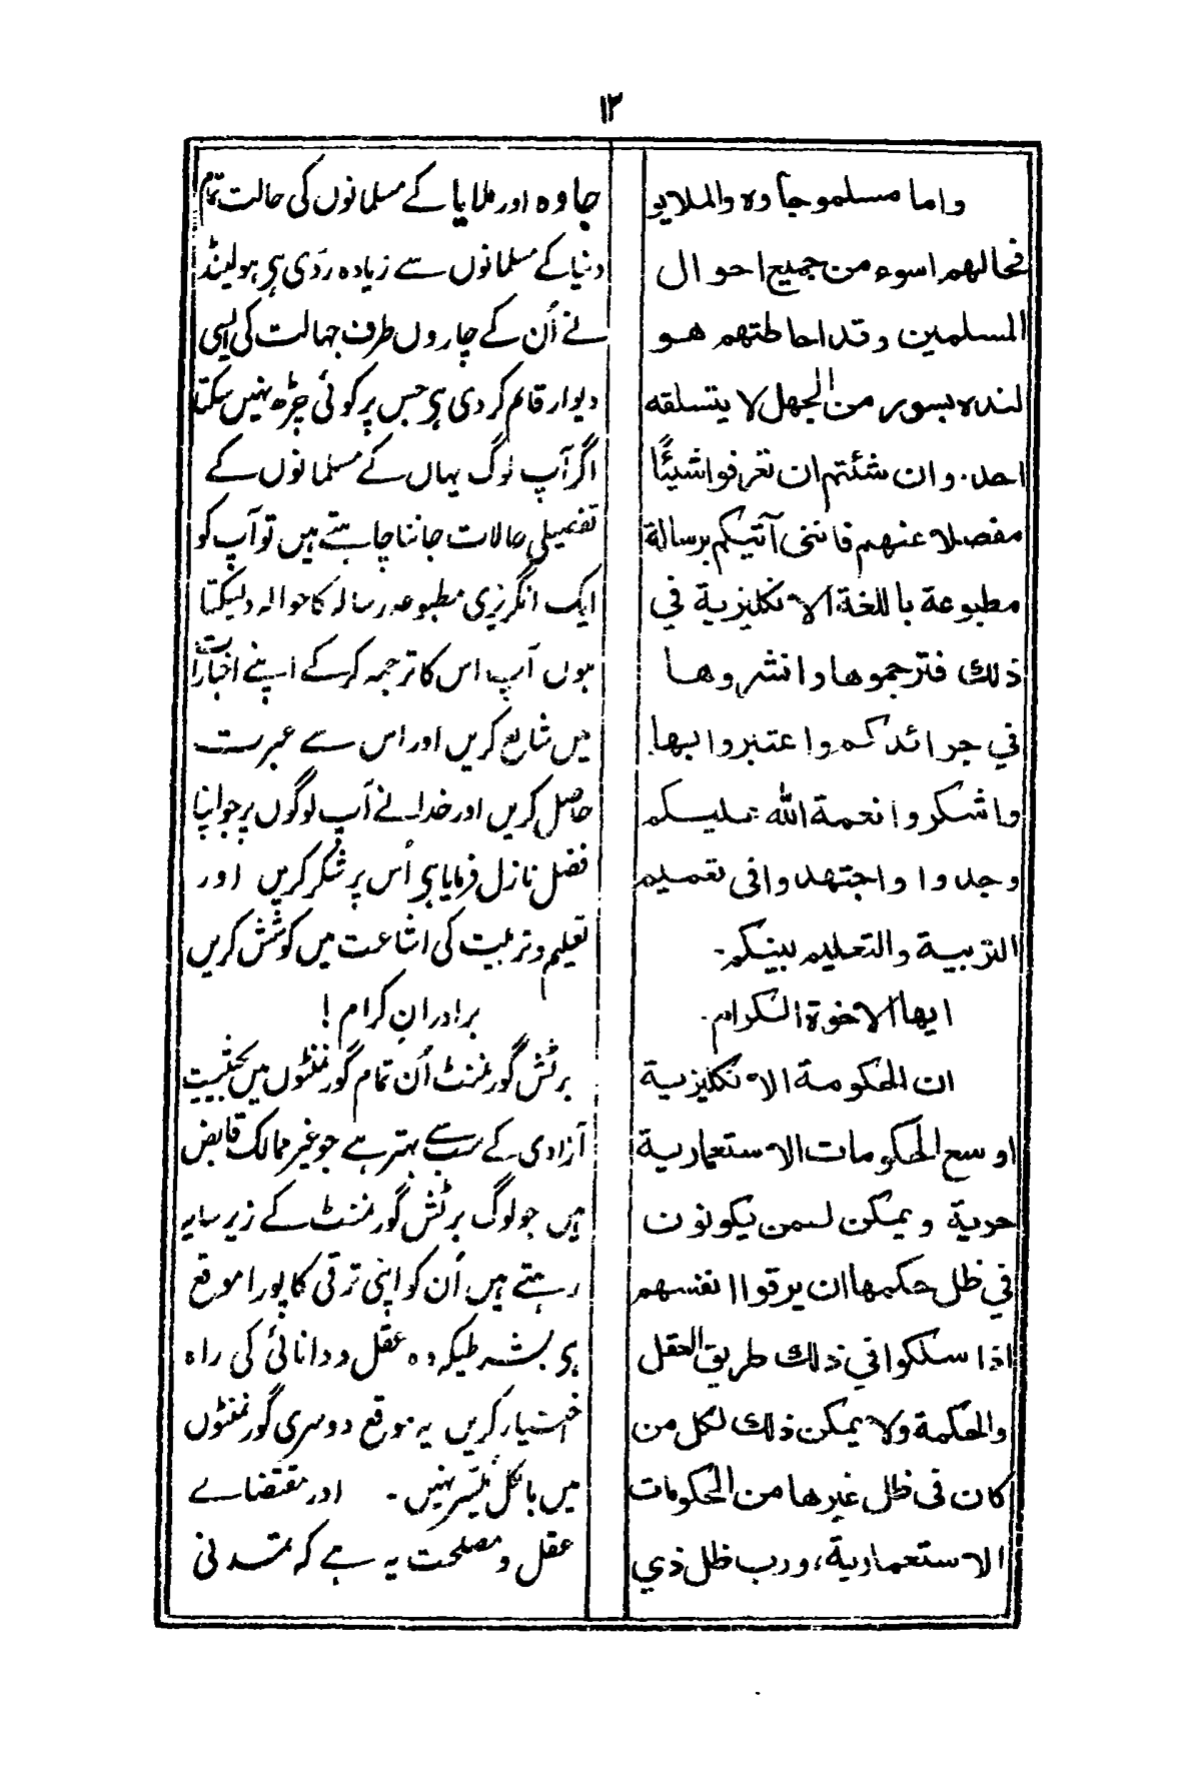 ١٢
واما مسلمو جاوه والملايو
فحالهم اسوء من جميع احوال
المسلمين وقد احاطتهم هو
لنده بسور من الجهل لا يتسلقه
احد. وان شئتم ان تعرفوا شيئًا
مفصلا عنهم فاننى آتيكم برسالة
مطبوعة باللغة الانكليزية في
ذلك فترجموها وانشروها
في جرائدكم واعتبروا بها
واشكروا نعمة الله عليكم
وجدوا واجتهدوا فى تعميم
التربية والتعليم بينكم.
ايها الاخوة الكرام.
ان الحكومة الانكليزية
اوسع الحكومات الاستعمارية
حرية ويمكن لمن يكونون
في ظل حكمها ان يرقوا انفسهم
اذا سلكوا في ذلك طريق العقل
والحكمة ولا يمكن ذلك لكل من
كان فى ظل غيرها من الحكومات
الاستعمارية، ورب ظل ذي
جاوہ اور ملایا کے مسلمانوں کی حالت تمام
دنیا کے مسلمانوں سے زیادہ ردی ہی ہولینڈ
نے اُن کے چاروں طرف جہالت کی ایسی
دیوار قائم کردی ہی جس پر کوئی چڑھ نہیں سکتا
اگر آپ لوگ یہاں کے مسلمانوں کے
تفصیلی حالات جاننا چاہتے ہیں تو آپ کو
ایک انگریزی مطبوعہ رسالہ کا حوالہ دلیکتا
ہوں آپ اس کا ترجمہ کرکے اپنے اخبارات
میں شایع کریں اور اس سے عبرت
حاصل کریں اور خدا نے آپ لوگوں پر جو اپنا
فضل نازل فرمایا ہی اُس پر شکر کریں اور
تعلیم و تربیت کی اشاعت میں کوشش کریں
برادرانِ کرام!
برٹش گورنمنٹ اُن تمام گورنمنٹوں میں بحیثیت
آزادی کے سب سے بہتر ہے جو غیر ممالک قابض
ہیں جو لوگ برٹش گورنمنٹ کے زیر سایہ
رہتے ہیں اُن کو اپنی ترقی کا پورا موقع
ہی بشرطیکہ وہ عقل و دانائی کی راہ
اختیار کریں یہ موقع دوسری گورنمنٹوں
میں بالکل میسر نہیں۔ اور مقتضاے
عقل و مصلحت یہ ہے کہ متمدنی